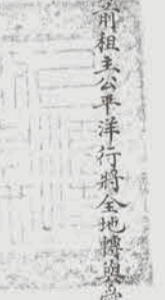 前租主公平洋行將全地轉與